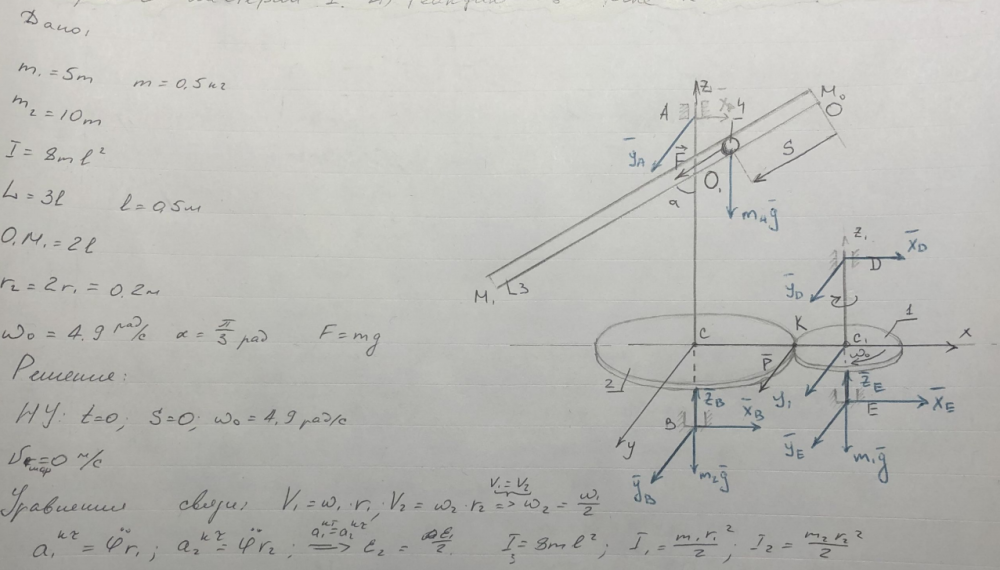 Дано,
m₁ = 5m m = 0,5 кг
m₂ = 10m
I = 8ml²
L = 3l l = 0,5м
O₁M₁ = 2l
r₂ = 2r₁ = 0.2м
ω₀ = 4.9 рад/с α = π/3 рад F = mg
Решение:
НУ: t=0; S=0; ω₀ = 4,9 рад/с
=0 м/с
Уравнения связи: V₁ = ω₁·r₁, V₂ = ω₂·r₂ V₁=V₂ => ω₂ = ω₁/2
a₁ᵏᵗ = φ̈r₁; a₂ᵏᵗ = φ̈r₂; a₁ᵏᵗ=a₂ᵏᵗ => ε₂ = ε₁/2. I₃ = 8ml²; I₁ = m₁r₁²/2; I₂ = m₂r₂²/2
Z
M₀
A
4
O
ȳ_A
F⃗
S
O₁
a
m₄ḡ
Z₁
X̄_D
D
M₁
3
ȳ_D
K
1
C
C₁
x
ω₀
P̄
2
Z̄_B
y₁
Z̄_E
B
X̄_B
E
X̄_E
y
ȳ_E
m₁ḡ
ȳ_B
m₂ḡ